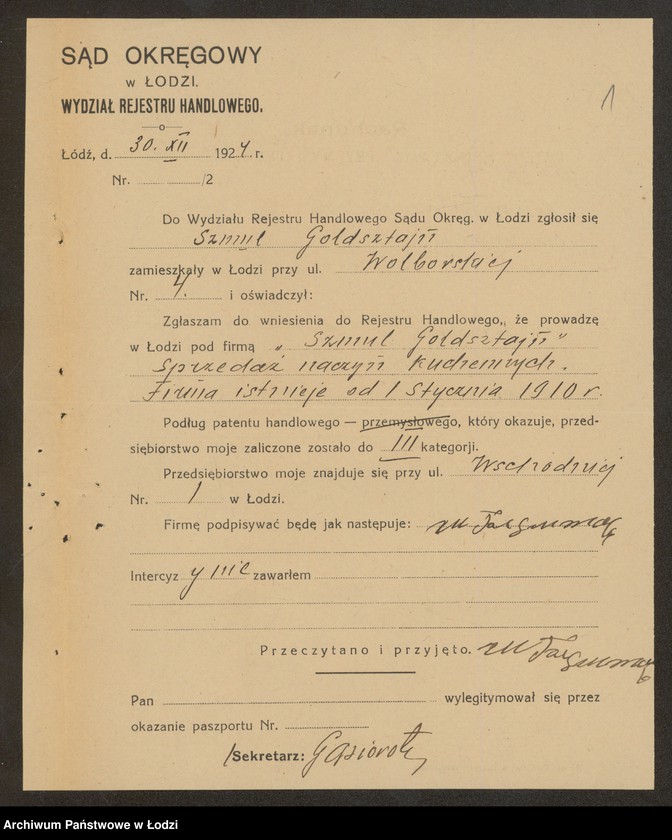 SĄD OKRĘGOWY
W ŁODZI.
WYDZIAŁ REJESTRU HANDLOWEGO.
1
Łódź, d. 30. XII 1924 r.
Nr. /2
Do Wydziału Rejestru Handlowego Sądu Okręg. w Łodzi zgłosił się
Szmul Goldsztajn
zamieszkały w Łodzi przy ul. Wolborskiej
Nr. 4. i oświadczył:
Zgłaszam do wniesienia do Rejestru Handlowego,, że prowadzę
w Łodzi pod firmą „Szmul Goldsztajn"
Sprzedaż naczyń kuchennych.
Firma istnieje od 1 Stycznia 1910 r.
Podług patentu handlowego — przemysłowego, który okazuje, przed-
siębiorstwo moje zaliczone zostało do III kategorji.
Przedsiębiorstwo moje znajduje się przy ul. Wschodniej
Nr. 1 w Łodzi.
Firmę podpisywać będę jak następuje:
Intercyzy nie zawarłem
Przeczytano i przyjęto.
Pan wylegitymował się przez
okazanie paszportu Nr.
/Sekretarz:
Archiwum Państwowe w Łodzi